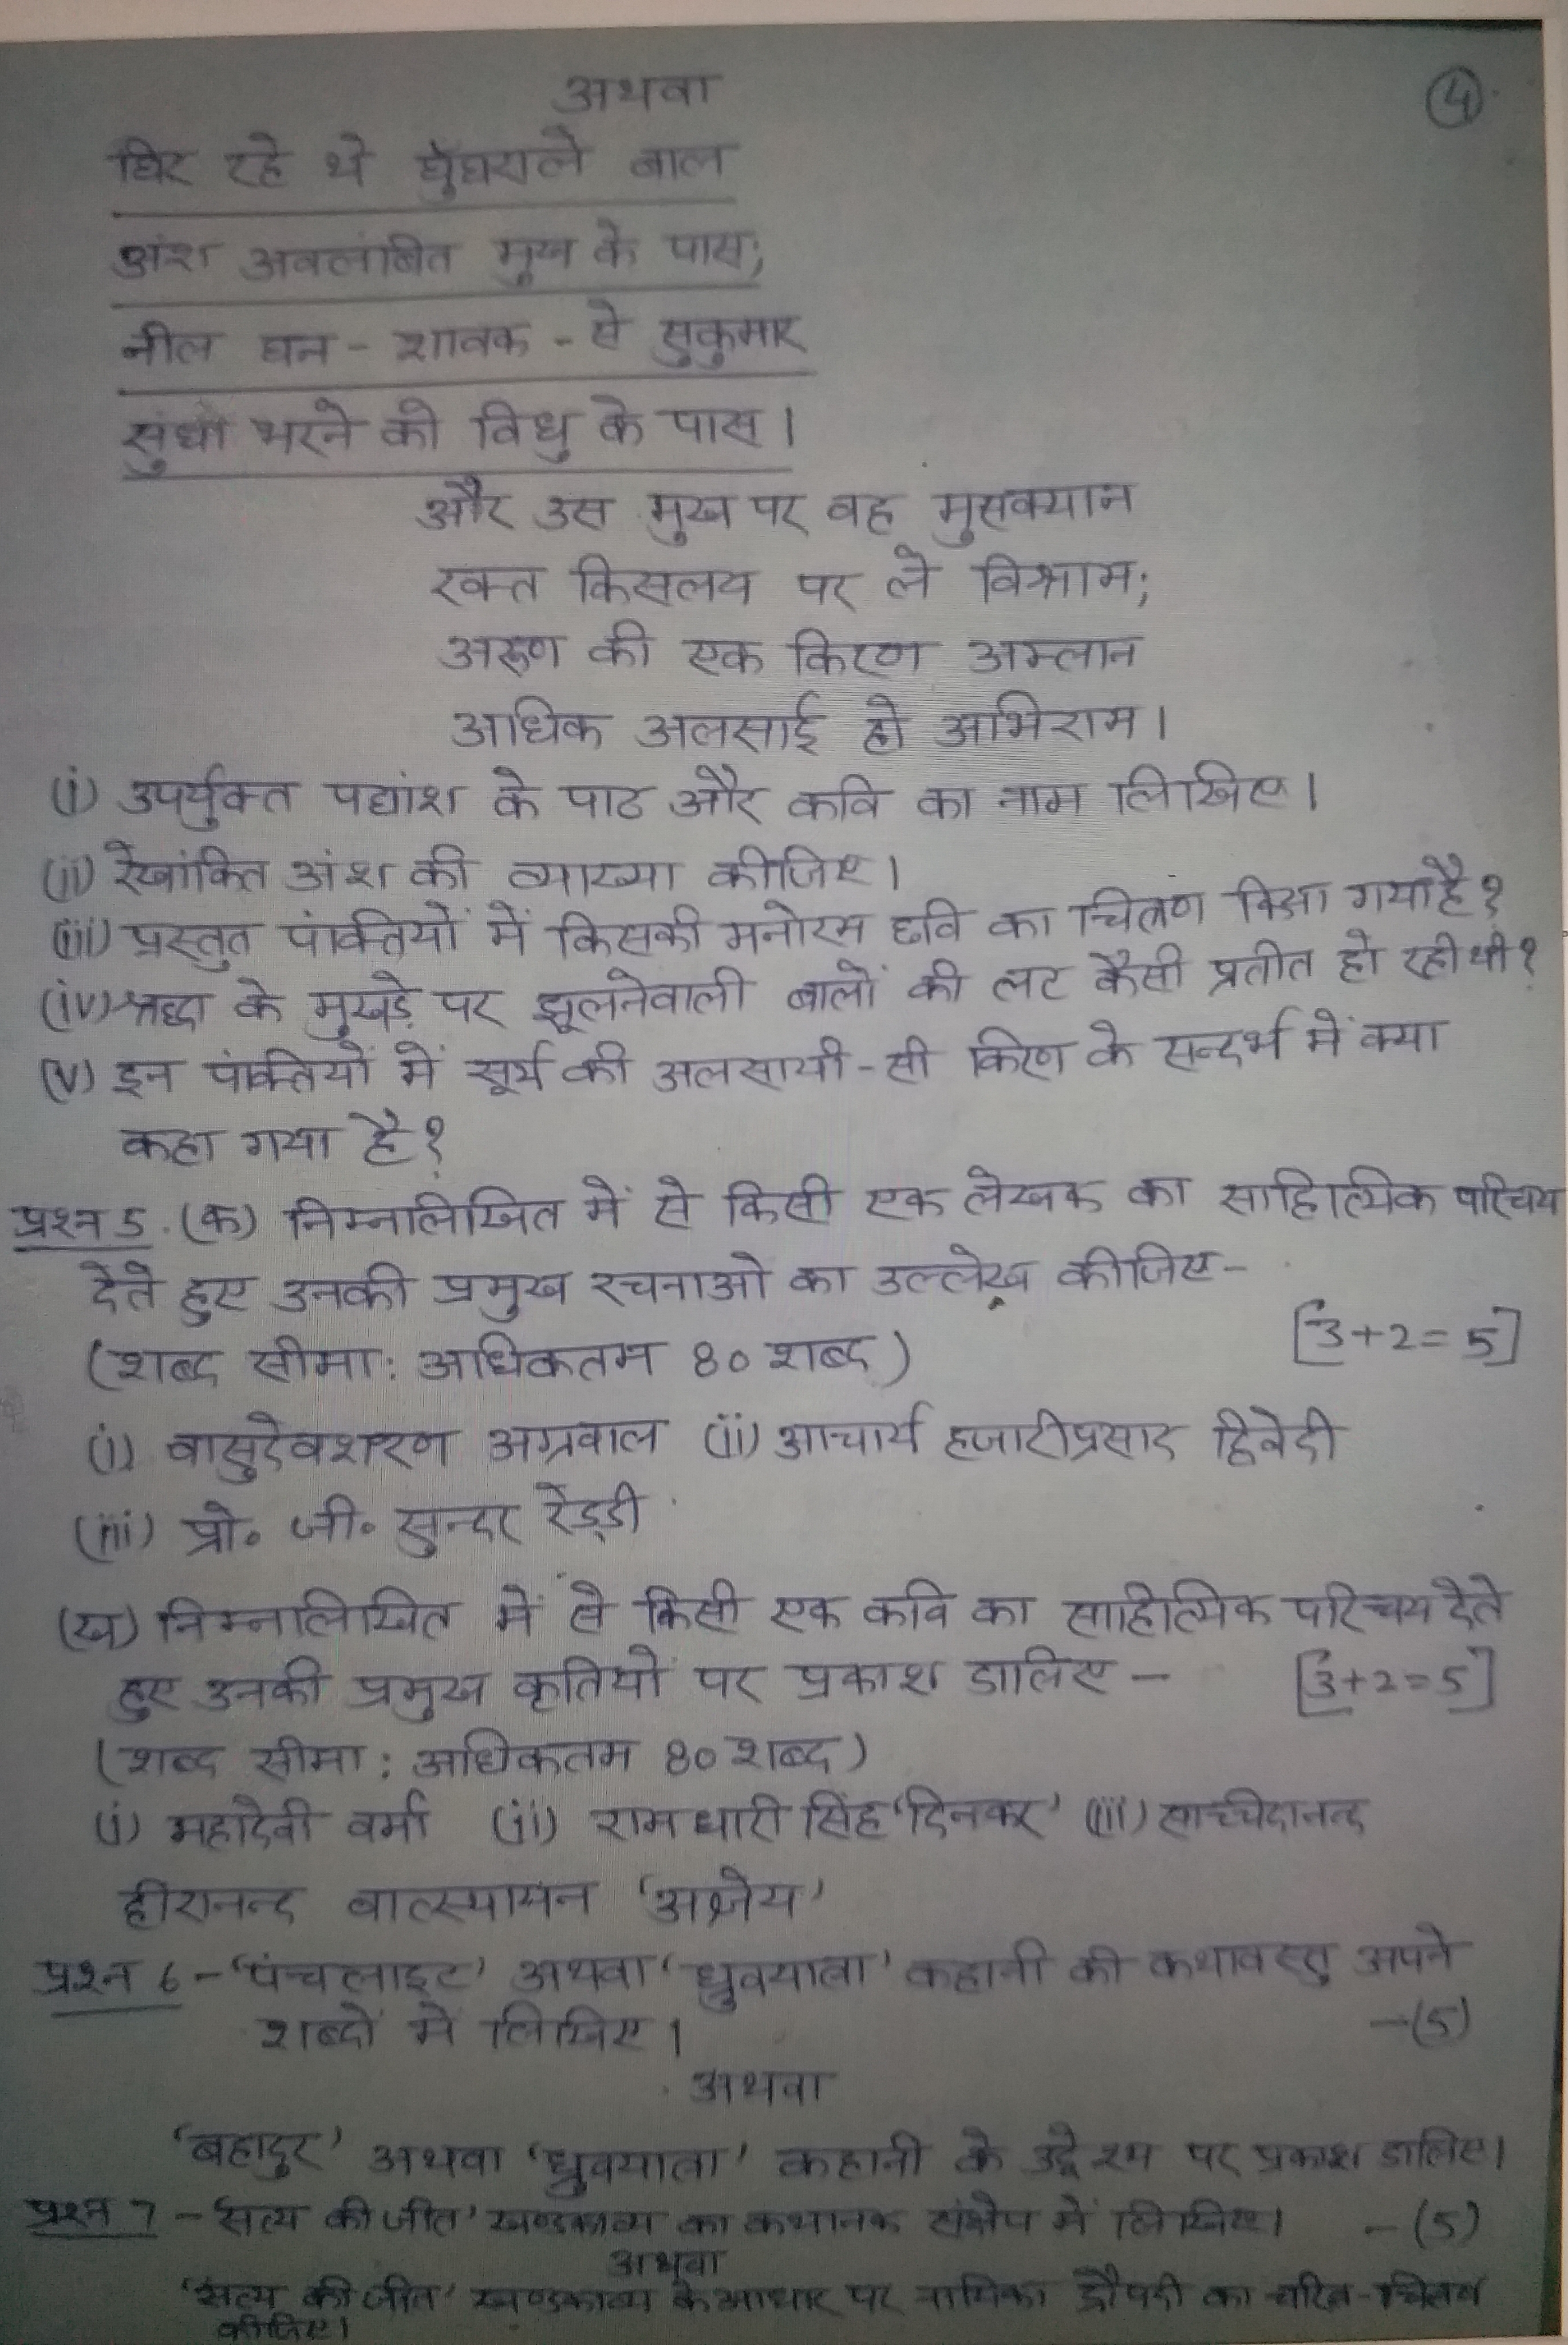 अथवा
④
घिर रहे थे घुँघराले बाल
अंश अवलंबित मुख के पास;
नील घन - शावक - से सुकुमार
सुधा भरने को विधु के पास।
और उस मुख पर वह मुसक्यान
रक्त किसलय पर ले विश्राम;
अरुण की एक किरण अम्लान
अधिक अलसाई हो अभिराम।
(i) उपर्युक्त पद्यांश के पाठ और कवि का नाम लिखिए।
(ii) रेखांकित अंश की व्याख्या कीजिए।
(iii) प्रस्तुत पंक्तियों में किसकी मनोरम छवि का चित्रण किया गया है?
(iv) श्रद्धा के मुखड़े पर झूलनेवाली बालों की लट कैसी प्रतीत हो रही थी?
(v) इन पंक्तियों में सूर्य की अलसायी-सी किरण के सन्दर्भ में क्या
कहा गया है?
प्रश्न 5. (क) निम्नलिखित में से किसी एक लेखक का साहित्यिक परिचय
देते हुए उनकी प्रमुख रचनाओ का उल्लेख कीजिए-
(शब्द सीमा: अधिकतम 80 शब्द) [3+2=5]
(i) वासुदेवशरण अग्रवाल (ii) आचार्य हजारीप्रसाद द्विवेदी
(iii) प्रो. जी. सुन्दर रेड्डी
(ख) निम्नलिखित में से किसी एक कवि का साहित्यिक परिचय देते
हुए उनकी प्रमुख कृतियों पर प्रकाश डालिए - [3+2=5]
(शब्द सीमा: अधिकतम 80 शब्द)
(i) महादेवी वर्मा (ii) रामधारी सिंह 'दिनकर' (iii) सच्चिदानन्द
हीरानन्द वात्स्यायन 'अज्ञेय'
प्रश्न 6 - 'पंचलाइट' अथवा 'ध्रुवयात्रा' कहानी की कथावस्तु अपने
शब्दों में लिखिए। -(5)
अथवा
'बहादुर' अथवा 'ध्रुवयात्रा' कहानी के उद्देश्य पर प्रकाश डालिए।
प्रश्न 7 - 'सत्य की जीत' खण्डकाव्य का कथानक संक्षेप में लिखिए। -(5)
अथवा
'सत्य की जीत' खण्डकाव्य के आधार पर नायिका द्रौपदी का चरित्र-चित्रण
कीजिए।